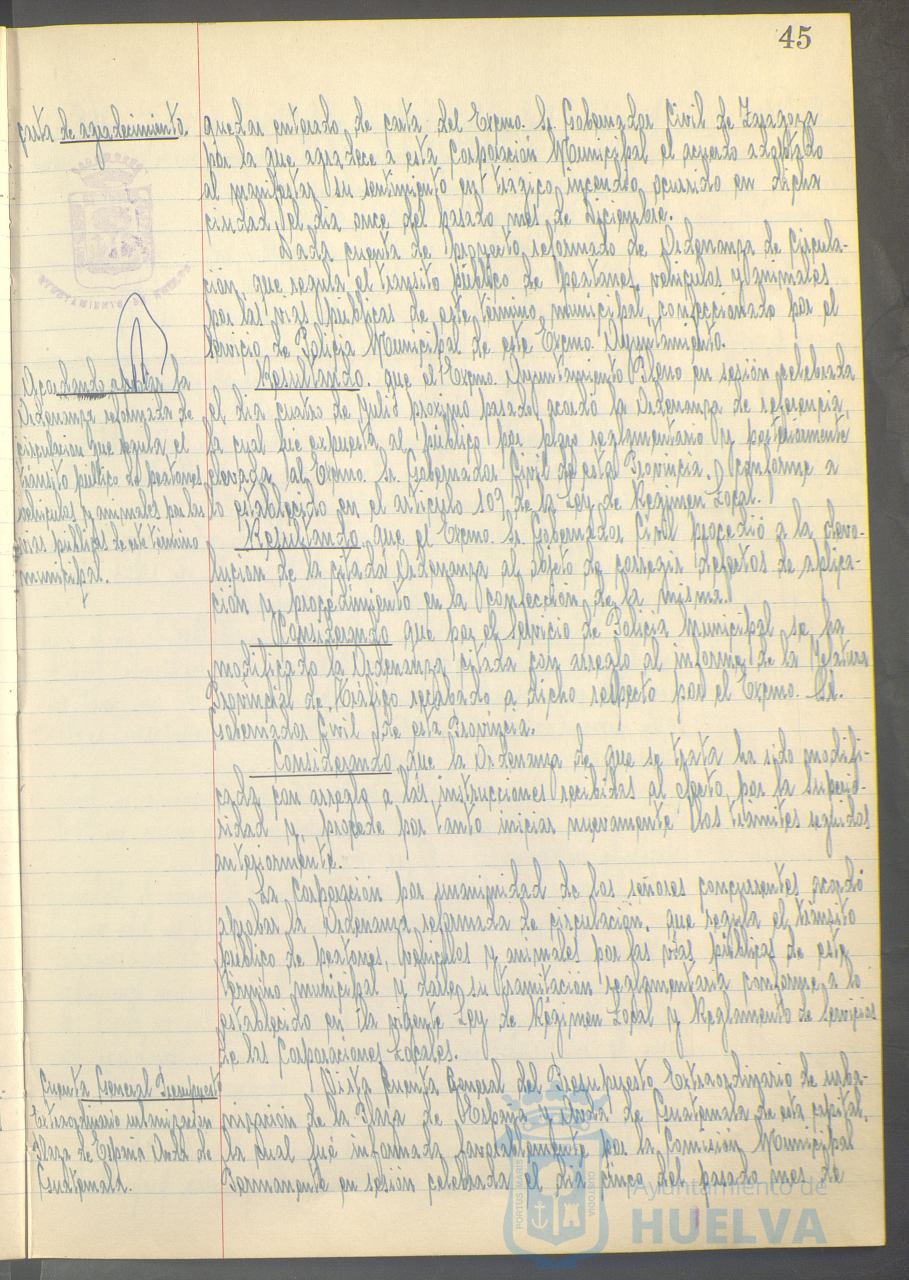 45
carta de agradecimiento.
quedar enterado de carta del Excmo. Sr. Gobernador Civil de Zaragoza
por la que agradece a esta Corporación Municipal el acuerdo adoptado
al manifestar su sentimiento en trágico incendio ocurrido en dicha
ciudad, el día once del pasado mes de Diciembre.
Dada cuenta de proyecto reformado de Ordenanza de Circula-
ción que regula el tránsito público de peatones, vehículos y animales
por las vías públicas de este término municipal, confeccionado por el
Servicio de Policía Municipal de este Excmo. Ayuntamiento.
Acordando aprobar la
Ordenanza reformada de
circulación que regula el
tránsito público de peatones
vehículos y animales por las
vías públicas de este término
municipal.
Resultando. que el Excmo. Ayuntamiento Pleno en sesión celebrada
el día cuatro de Julio próximo pasado acordó la Ordenanza de referencia,
la cual fue expuesta al público por plazo reglamentario y posteriormente
elevada al Excmo. Sr. Gobernador Civil de esta Provincia, conforme a
lo establecido en el artículo 109 de la Ley de Régimen Local.
Resultando que el Excmo. Sr. Gobernador Civil procedió a la devo-
lución de la citada Ordenanza al objeto de corregir defectos de aplica-
ción y procedimiento en la confección de la misma.
Considerando que por el Servicio de Policía Municipal se ha
modificado la Ordenanza citada con arreglo al informe de la Jefatura
Provincial de Tráfico recabado a dicho respecto por el Excmo. Sr.
Gobernador Civil de esta Provincia.
Considerando que la Ordenanza de que se trata ha sido modifi-
cada con arreglo a las instrucciones recibidas al efecto por la Superio-
ridad y procede por tanto iniciar nuevamente los trámites seguidos
anteriormente.
La Corporación por unanimidad de los señores concurrentes acordó
aprobar la Ordenanza reformada de circulación, que regula el tránsito
público de peatones, vehículos y animales por las vías públicas de este
término municipal y darle su tramitación reglamentaria conforme a lo
establecido en la vigente Ley de Régimen Local y Reglamento de Servicios
de las Corporaciones Locales.
Cuenta General Presupuesto
Extraordinario urbanización
Plaza de España Avda de
Guatemala.
Vista cuenta General del Presupuesto Extraordinario de urba-
nización de la Plaza de España Avda de Guatemala de esta capital,
la cual fué informada favorablemente por la Comisión Municipal
Permanente en sesión celebrada el día cinco del pasado mes de
PORTUS MARIS
CUSTODIA
Ayuntamiento de
HUELVA